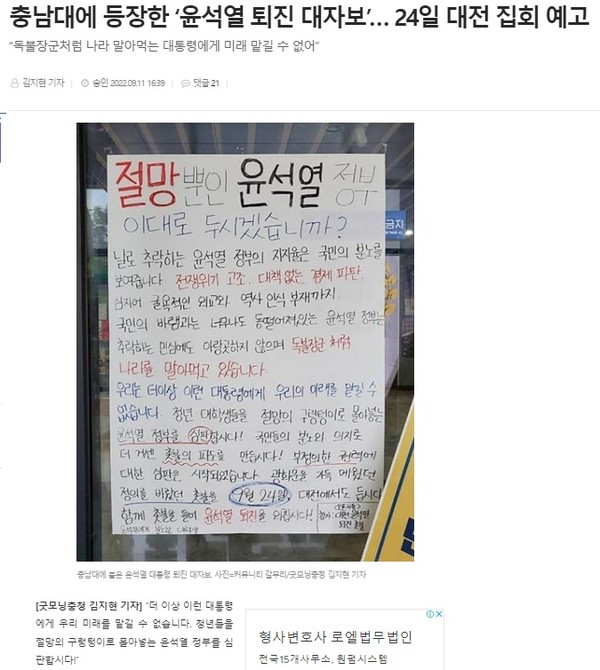 충남대에 등장한 ‘윤석열 퇴진 대자보’… 24일 대전 집회 예고
“독불장군처럼 나라 말아먹는 대통령에게 미래 맡길 수 없어”
김지현 기자 승인 2022.09.11 16:39 댓글 21
절망뿐인 윤석열 정부
이대로 두시겠습니까?
날로 추락하는 윤석열 정부의 지지율은 국민의 분노를
보여줍니다. 전쟁위기 고조, 대책 없는 경제 파탄,
심지어 굴욕적인 외교와 역사 인식 부재까지.
국민의 바램과는 너무나도 동떨어져있는 윤석열 정부는
추락하는 민심에도 아랑곳하지 않으며 독불장군처럼
나라를 말아먹고 있습니다.
우리는 더이상 이런 대통령에게 우리의 미래를 맡길 수
없습니다. 청년 대학생들을 절망의 구렁텅이로 몰아넣는
윤석열 정부를 심판합시다! 국민들의 분노와 의지로
더 거센 촛불의 파도를 만듭시다! 부정의한 권력에
대한 심판은 시작되었습니다. 광화문을 가득 메웠던
정의를 바랬던 촛불을 9월 24일, 대전에서도 듭시다
함께 촛불을 들어 윤석열 퇴진을 외칩시다!
퇴진 촛불
금지
충남대에 붙은 윤석열 대통령 퇴진 대자보. 사진=커뮤니티 갈무리/굿모닝충청 김지현 기자
[굿모닝충청 김지현 기자] “더 이상 이런 대통령
에게 우리 미래를 맡길 수 없습니다. 청년들을
절망의 구렁텅이로 몰아넣는 윤석열 정부를 심
판합시다!”
형사변호사 로엘법무법인
전국15개사무소, 원펌시스템